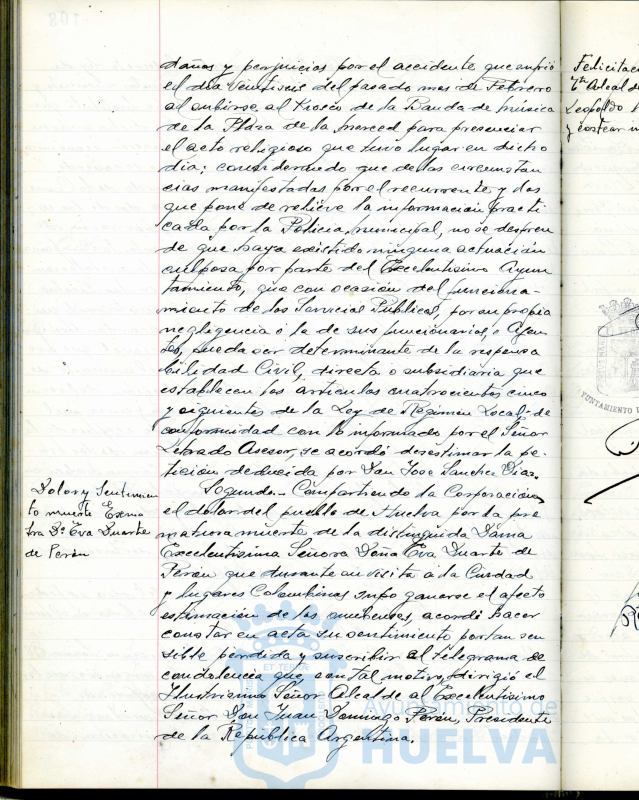 daños y perjuicios por el accidente que sufrió
el dia veintiseis del pasado mes de Febrero
al subirse al Kiosco de la Banda de música
de la Plaza de la Merced para presenciar
el acto religioso que tuvo lugar en dicho
dia; considerando que de las circunstan
cias manifestadas por el recurrente y las
que pone de relieve la información practi
cada por la Policia municipal, no se despren
de que haya existido ninguna actuación
culposa por parte del Excelentisimo Ayun
tamiento, que con ocasión del funciona-
miento de los Servicios Públicos, por su propia
negligencia ó la de sus funcionarios, ó Agen
tes, pueda ser determinante de la responsa
bilidad Civil, directa o subsidiaria que
establecen los articulos cuatrocientos cinco
y siguientes de la Ley de Régimen Local; de
conformidad con lo informado por el Señor
Letrado Asesor, se acordó desestimar la pe-
tición deducida por Don José Sanchez Diaz.
Dolor y Sentimien
to muerte Excma
Sra Dª Eva Duarte
de Perón
Segundo.- Compartiendo la Corporación
el dolor del pueblo de Huelva por la pre
matura muerte de la distinguida Dama
Excelentisima Señora Doña Eva Duarte de
Perón que durante su visita á la Ciudad
y lugares Colombinos supo ganarse el afecto
estimación de los onubenses, acordó hacer
constar en acta su sentimiento por tan sen
sible pérdida y suscribir el telegrama de
condolencia que, con tal motivo, dirigió el
Ilustrisimo Señor Alcalde al Excelentisimo
Señor Don Juan Domingo Perón, Presidente
de la República Argentina.
Felicitaci
Leopoldo
y costear
Ayuntamiento de
HUELVA